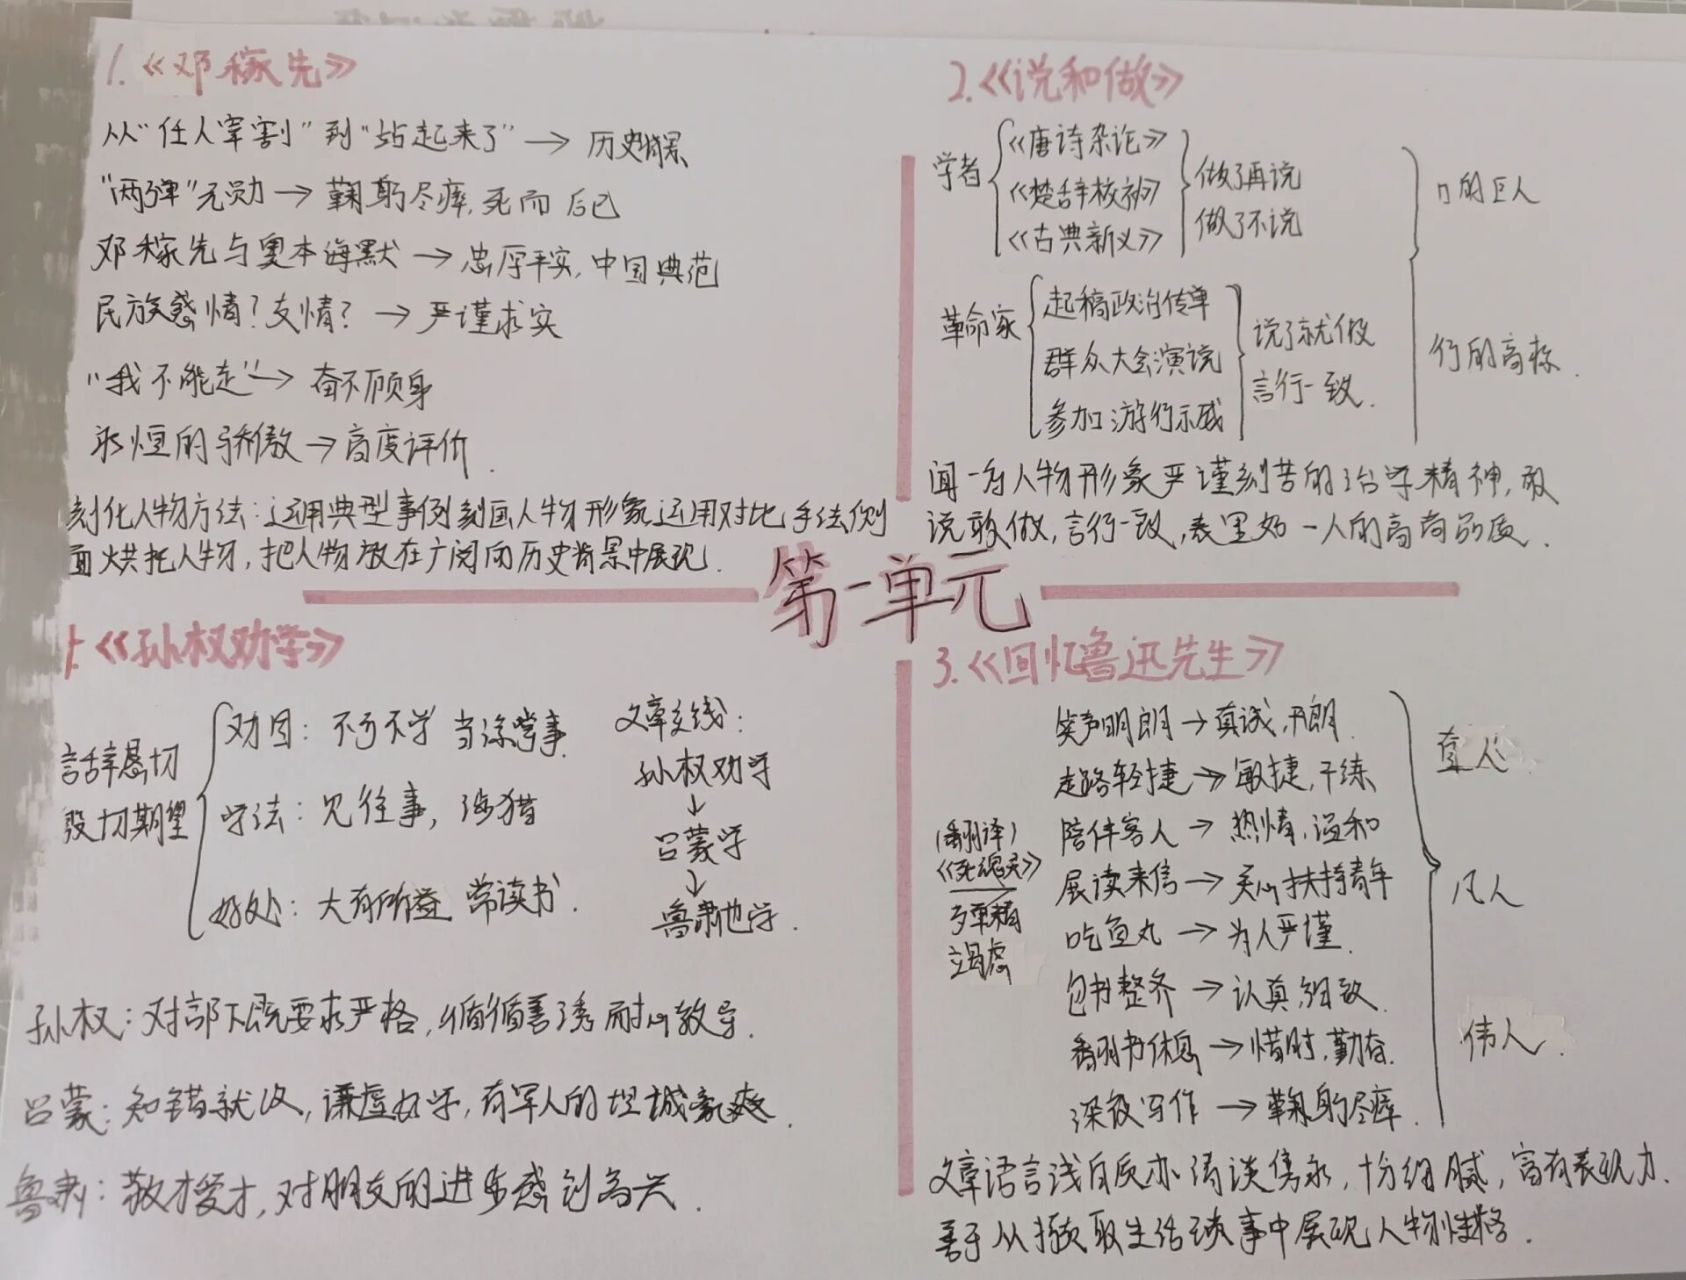 1.《邓稼先》
从“任人宰割”到“站起来了”→历史背景
“两弹”元勋→鞠躬尽瘁,死而后已
邓稼先与奥本海默→忠厚平实,中国典范
民族感情?友情?→严谨求实
“我不能走”→奋不顾身
永恒的骄傲→高度评价.
刻化人物方法:运用典型事例刻画人物形象,运用对比手法侧
面烘托人物,把人物放在广阔的历史背景中展现.
2.《说和做》
学者
《唐诗杂论》
《楚辞校补》
《古典新义》
做了再说
做了不说
口的巨人
革命家
起稿政治传单
群众大会演说
参加游行示威
说了就做
言行一致.
行的高标.
闻一多人物形象严谨刻苦的治学精神,敢
说敢做,言行一致,表里如一人的高尚品质.
第一单元
《孙权劝学》
言辞恳切
殷切期望
劝因:不可不学 当涂掌事.
学法:见往事,涉猎
好处:大有所益 常读书.
文章主线:
孙权劝学
↓
吕蒙学
↓
鲁肃也学.
孙权:对部下既要求严格,循循善诱耐心教导.
吕蒙:知错就改,谦虚好学,有军人的坦诚豪爽.
鲁肃:敬才爱才,对朋友的进步感到高兴.
3.《回忆鲁迅先生》
(翻译)
《死魂灵》
殚精
竭虑
笑声明朗→真诚,开朗.
走路轻捷→敏捷,干练
陪伴客人→热情,温和
展读来信→关心扶持青年
吃鱼丸→为人严谨.
包书整齐→认真,细致.
翻书休息→惜时,勤奋.
深夜写作→鞠躬尽瘁.
真人
凡人
伟人.
文章语言浅白质朴清淡隽永,十分细腻,富有表现力.
善于从撷取生活琐事中展现人物性格.